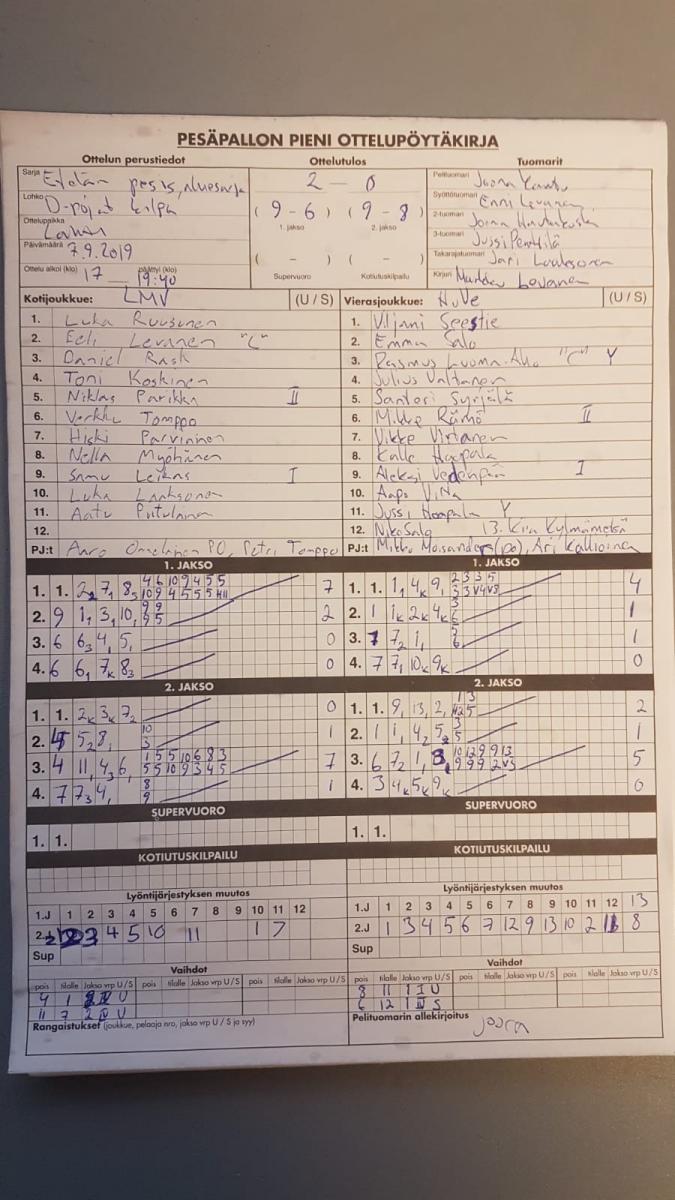 PESÄPALLON PIENI OTTELUPÖYTÄKIRJA
Ottelun perustiedot Ottelutulos Tuomarit
Sarja Etelän pesis, aluesarja
Lohko D-pojat kilpa
Ottelupaikka Lahti
Päivämäärä 7.9.2019
Ottelu alkoi (klo) 17 päättyi (klo) 19:40
2 – 0
(9 – 6) (9 – 8)
1. jakso 2. jakso
( – ) ( – )
Supervuoro Kotiutuskilpailu
Pelituomari Joona
Syöttötuomari Enni Levanen
2-tuomari Joina
3-tuomari Jussi Penttilä
Takarajatuomari Jari
Kirjuri Markku Levanen
Kotijoukkue: LMV (U / S) Vierasjoukkue: HyVe (U / S)
1. Luka Ruusunen
2. Eeli Levanen "C"
3. Daniel Rask
4. Toni Koskinen
5. Niklas Parikka II
6. Verkku Tomppo
7. Hiski Parviainen
8. Nella Myöhänen
9. Samu Leikas I
10. Luka Laaksonen
11. Aatu Putulainen
12.
PJ:t Auro Onnelainen PO, Petri Tomppo
1. Viljami Seestie
2. Emma Salo
3. Rasmus Luoma-Aho "C" Y
4. Julius Valtanen
5. Santeri Syrjälä
6. Mikke Rämö II
7. Vikke Virtanen
8. Kalle Haapala
9. Aleksi Vedenpää I
10. Aapo
11. Jussi Haapala Y
12. Niko Salo 13. Kira Kylmämetsä
PJ:t Mikko Moisander (po), Ari Kallioinen
1. JAKSO 1. JAKSO
1. 1. 2₂ 7₁ 8₃ 4 6 10 9 4 5 5 7
10 9 4 5 5 5 4 11
2. 9 1₁ 3₁ 10₁ 9 9 2
9 5
3. 6 6₃ 4₁ 5₁ 0
4. 6 6₁ 7ₖ 8₃ 0
1. 1. 1₁ 4ₖ 9₁ 2 3 3 5 4
3 3 V4 V8
2. 1 1ₖ 2ₖ 4ₖ 3 1
6
3. 7 7₂ 1₁ 5 1
6
4. 7 7₁ 10ₖ 9ₖ 0
2. JAKSO 2. JAKSO
1. 1. 2ₖ 3ₖ 7₂ 0
2. 5 5₂ 8₁ 10 1
3
3. 4 11₁ 4₃ 6₁ 1 5 5 10 6 8 3 7
5 5 10 9 3 4 5
4. 7 7₃ 4₁ 8 1
9
1. 1. 9₁ 13₁ 2₁ 1 3 2
2. 1 1₁ 4₂ 5₂ 3 1
5
3. 6 7₂ 1₁ 8₁ 10 12 9 9 13 5
9 9 9 2 V3
4. 3 4ₖ 5ₖ 9ₖ 0
SUPERVUORO SUPERVUORO
1. 1. 1. 1.
KOTIUTUSKILPAILU KOTIUTUSKILPAILU
Lyöntijärjestyksen muutos Lyöntijärjestyksen muutos
1.J 1 2 3 4 5 6 7 8 9 10 11 12
2.J 2 3 4 5 10 11 1 7
Sup
1.J 1 2 3 4 5 6 7 8 9 10 11 12 13
2.J 1 3 4 5 6 7 12 9 13 10 2 11 8
Sup
Vaihdot Vaihdot
pois tilalle Jakso vrp U / S pois tilalle Jakso vrp U / S pois tilalle Jakso vrp U / S
4 1 2 IV U
11 7 2 IV U
8 11 1 I U
6 12 1 IV S
Rangaistukset (joukkue, pelaaja nro, jakso vrp U / S ja syy)
Pelituomarin allekirjoitus
Joona